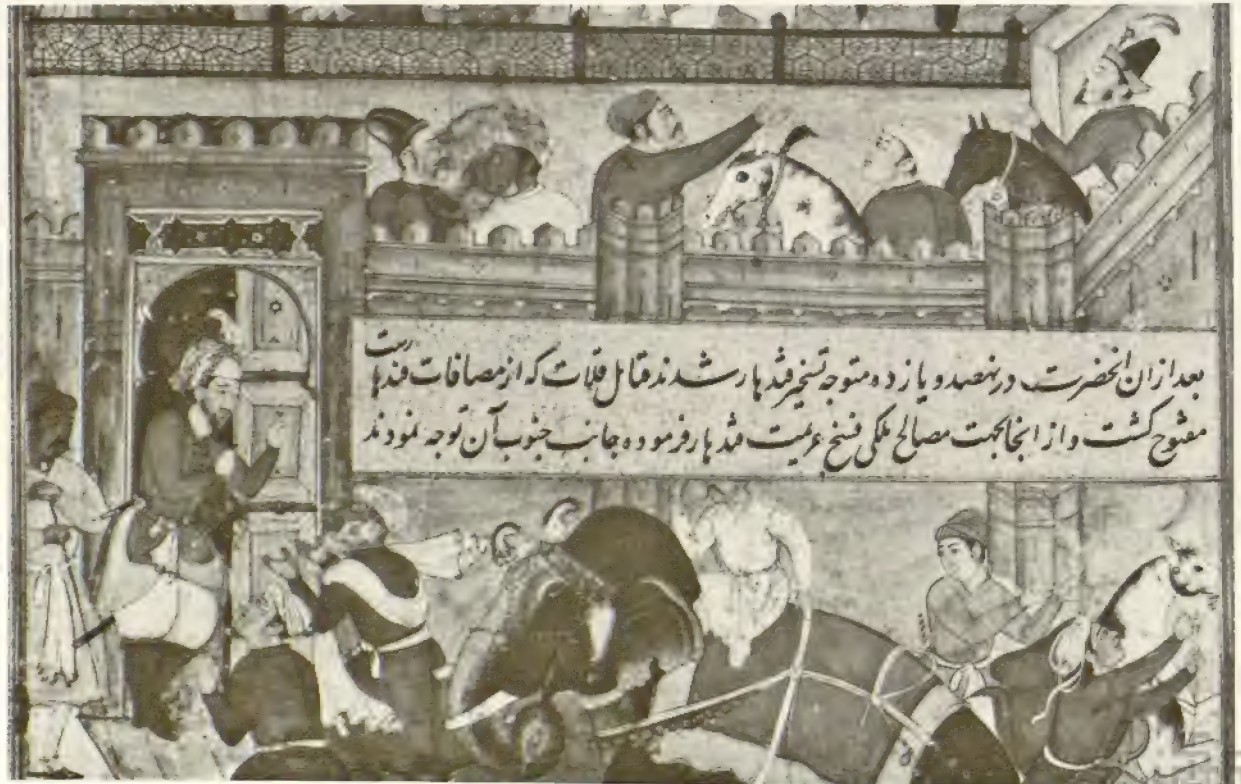 بعد ازان انحضرت در نهصد و یازده متوجه تسخیر قندهار شدند قتابل قلات که از مضافات قندهارست
مفتوح کشت و از انجا بجهت مصالح ملکی فسخ عزیمت قندهار فرموده جانب جنوب آن توجه نمودند